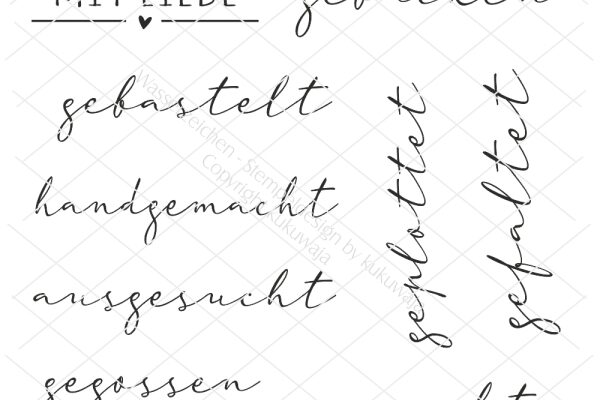 MIT LIEBE
gebastelt
handgemacht
ausgesucht
gegossen
geplottet
gefaltet
Wasserzeichen - Stempeldesign by kukuwaja
Copyright kukuwaja